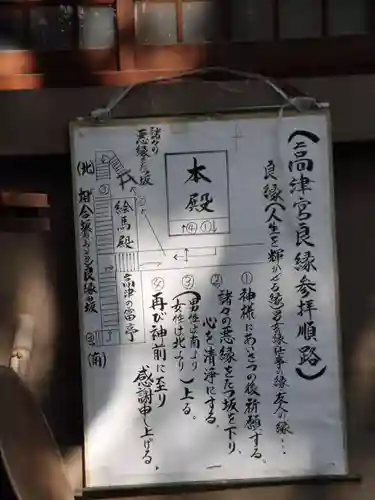 〈高津宮良縁参拝順路〉
良縁(人生を輝かせる縁
仕事の縁 友人の縁…
①神様にあいさつの後祈願する。
②諸々の悪縁をたつ坂を下り、
心を清浄にする。
③(男性は南より
女性は北より)上る。
④再び神前に至り
感謝申し上げる。
本殿
④①
諸々の
悪縁をたつ坂
②
絵馬殿
高津の富亭
③
(北)
良縁の坂
③
(南)